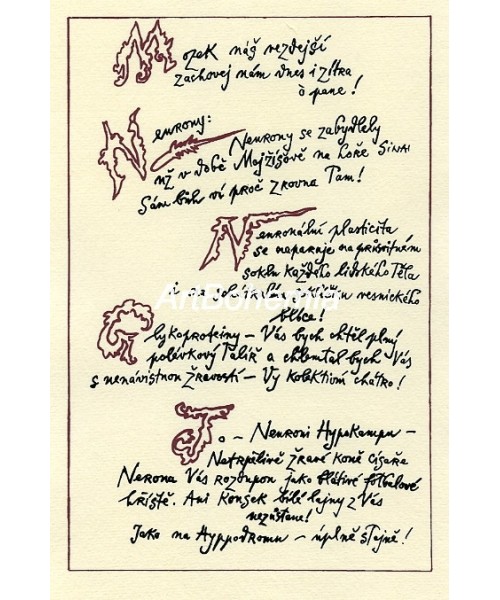 Mozek náš vezdejší
zachovej nám dnes i zítra
ó pane!
Neurony:
Neurony se zabydlely
už v době Mojžíšově na hoře SINAI
Sám bůh ví proč zrovna Tam!
Neuronální plasticita
se naparuje na průsvitném
soklu každého lidského Těla
i na
vesnického
blbce!
ArtBohemia
Glykoproteiny – Vás bych chtěl plný
polévkový Talíř a chlemtal bych Vás
s nenávistnou Žravostí – Vy kolektivní chátro!
To – Neuroni Hypokampu –
Netrpělivě Žravé koně císaře
Nerona Vás rozdupou jako blátivé fotbalové
hřiště. Ani kousek bílé lajny z Vás
nezůstane!
Jako na Hyppodromu – úplně stejně!